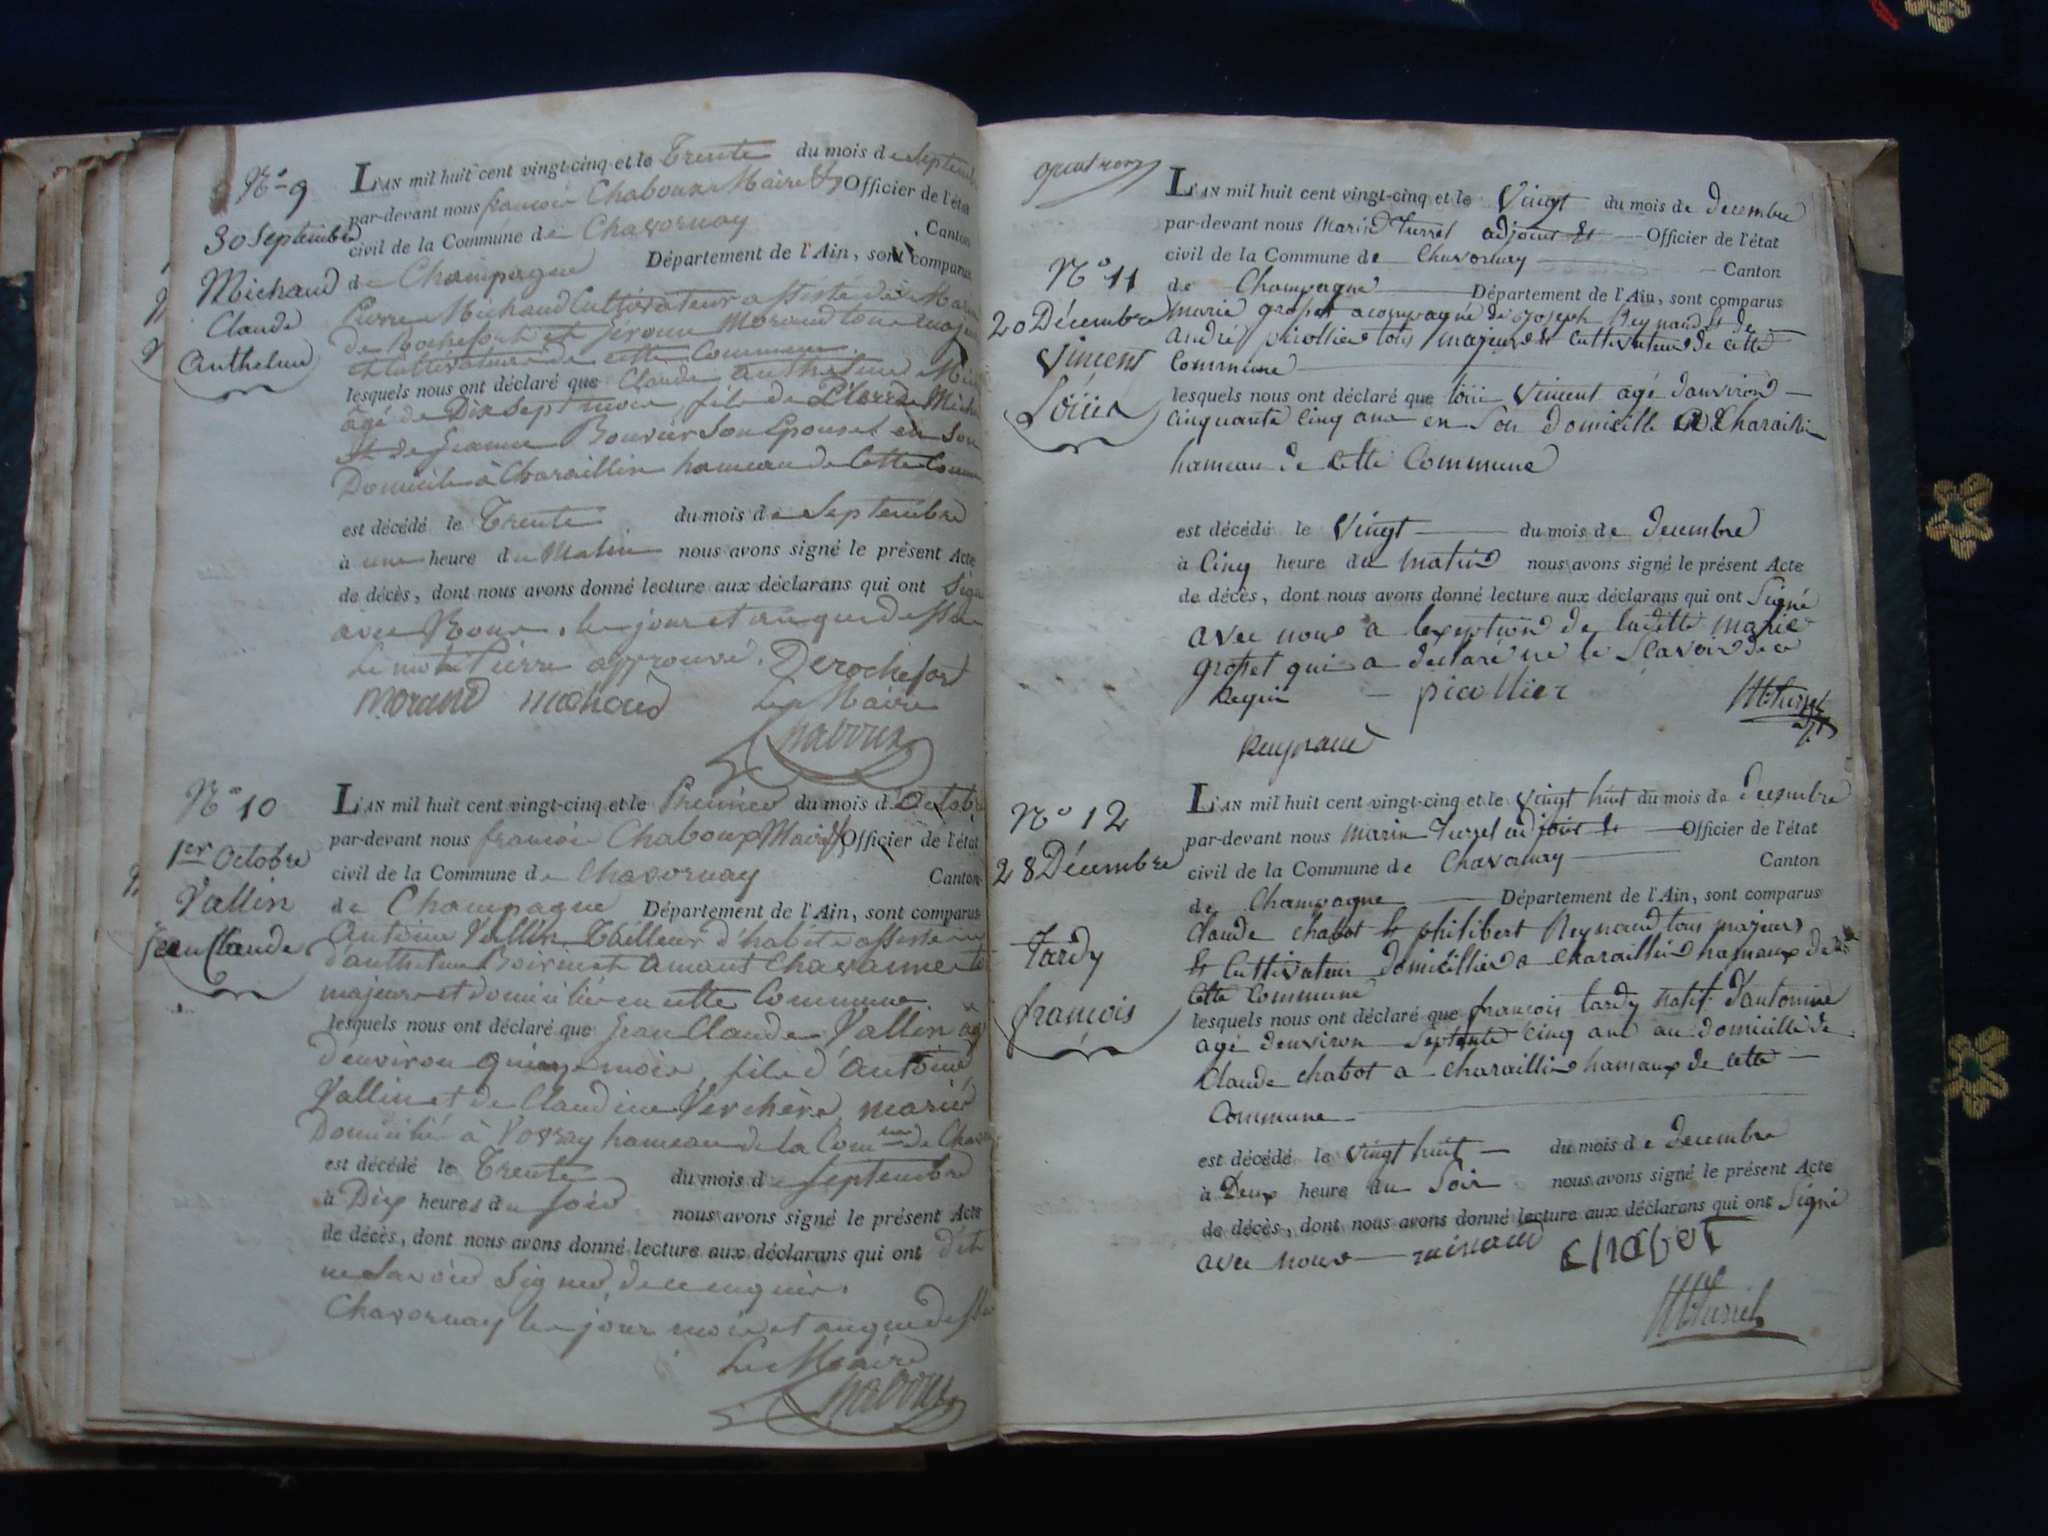 N° 9
30 Septembre
Michaud
Claude
Anthelme
L'AN mil huit cent vingt-cinq et le Trente du mois de Septembre
par-devant nous françois Chaboux Maire & Officier de l'état
civil de la Commune de Chavornay Canton
de Champagne Département de l'Ain, sont comparus
Pierre Michaud Cultivateur assisté de
de Rochefort et Morand tous majeurs
et Cultivateurs de cette Commune.
lesquels nous ont déclaré que Claude Anthelme
agé de Dix sept mois, fils de Pierre
et de Jeanne Bouvier Son Epouse en Son
Domicile à Charaillin hameau de Cette
est décédé le Trente du mois de Septembre
à une heure du Matin nous avons signé le présent Acte
de décès, dont nous avons donné lecture aux déclarans qui ont Signé
avec Nous, les jour et an que dessus
Le mot Pierre approuvé. Derochefort
Morand michaud Le Maire
Chaboux
N° 10
1er Octobre
Vallin
Jean Claude
L'AN mil huit cent vingt-cinq et le Premier du mois d'Octobre
par-devant nous françois Chaboux Maire & Officier de l'état
civil de la Commune de Chavornay Canton
de Champagne Département de l'Ain, sont comparus
Antoine Vallin Tailleur d'habits assisté
d'anthelme et amant Chavanne
majeurs et domiciliés en cette Commune
lesquels nous ont déclaré que Jean Claude Vallin agé
d'environ quinze mois, fils d'Antoine
Vallin et de Claudine Verchère mariés
Domicilié à hameau de la Comune de
est décédé le Trente du mois de Septembre
à Dix heures du Soir nous avons signé le présent Acte
de décès, dont nous avons donné lecture aux déclarans qui ont dit
ne Savoir Signer, de ce enquis.
Chavornay les jour mois et an que dessus
Le Maire
Chaboux
N° 11
20 Décembre
Vincent
Loüis
L'AN mil huit cent vingt-cinq et le Vingt du mois de decembre
par-devant nous Marin Turrel adjoint & Officier de l'état
civil de la Commune de Chavornay Canton
de Champagne Département de l'Ain, sont comparus
marie grosset acompagné de Joseph Reynaud & de
andré picollier tous majeurs & Cultivateurs de cette
Commune
lesquels nous ont déclaré que loüis Vincent agé danviron
cinquante cinq ans en Son domicille a Charaillin
hameau de cette Commune
est décédé le Vingt du mois de decembre
à Cinq heure du matin nous avons signé le présent Acte
de décès, dont nous avons donné lecture aux déclarans qui ont Signé
avec nous a lexeption de laditte marie
grosset qui a declaré ne le Scavoir de ce
Requis picollier MTurrel
Reynaud
N° 12
28 Décembre
Tardy
françois
L'AN mil huit cent vingt-cinq et le vingt huit du mois de decembre
par-devant nous Marin Turrel adjoint & Officier de l'état
civil de la Commune de Chavornay Canton
de Champagne Département de l'Ain, sont comparus
Claude chabot & philibert Reynaud tous majeurs
& Cultivateur domicilliés a charaillin hamaux de
Cette Commune
lesquels nous ont déclaré que françois tardy natif d'antomine
agé denviron septente cinq ans au domicille de
Claude chabot a charaillin hamaux de cette
Commune
est décédé le vingt huit du mois de decembre
à Deux heure du Soir nous avons signé le présent Acte
de décès, dont nous avons donné lecture aux déclarans qui ont Signé
avec nous reinaud chabot
MTurrel